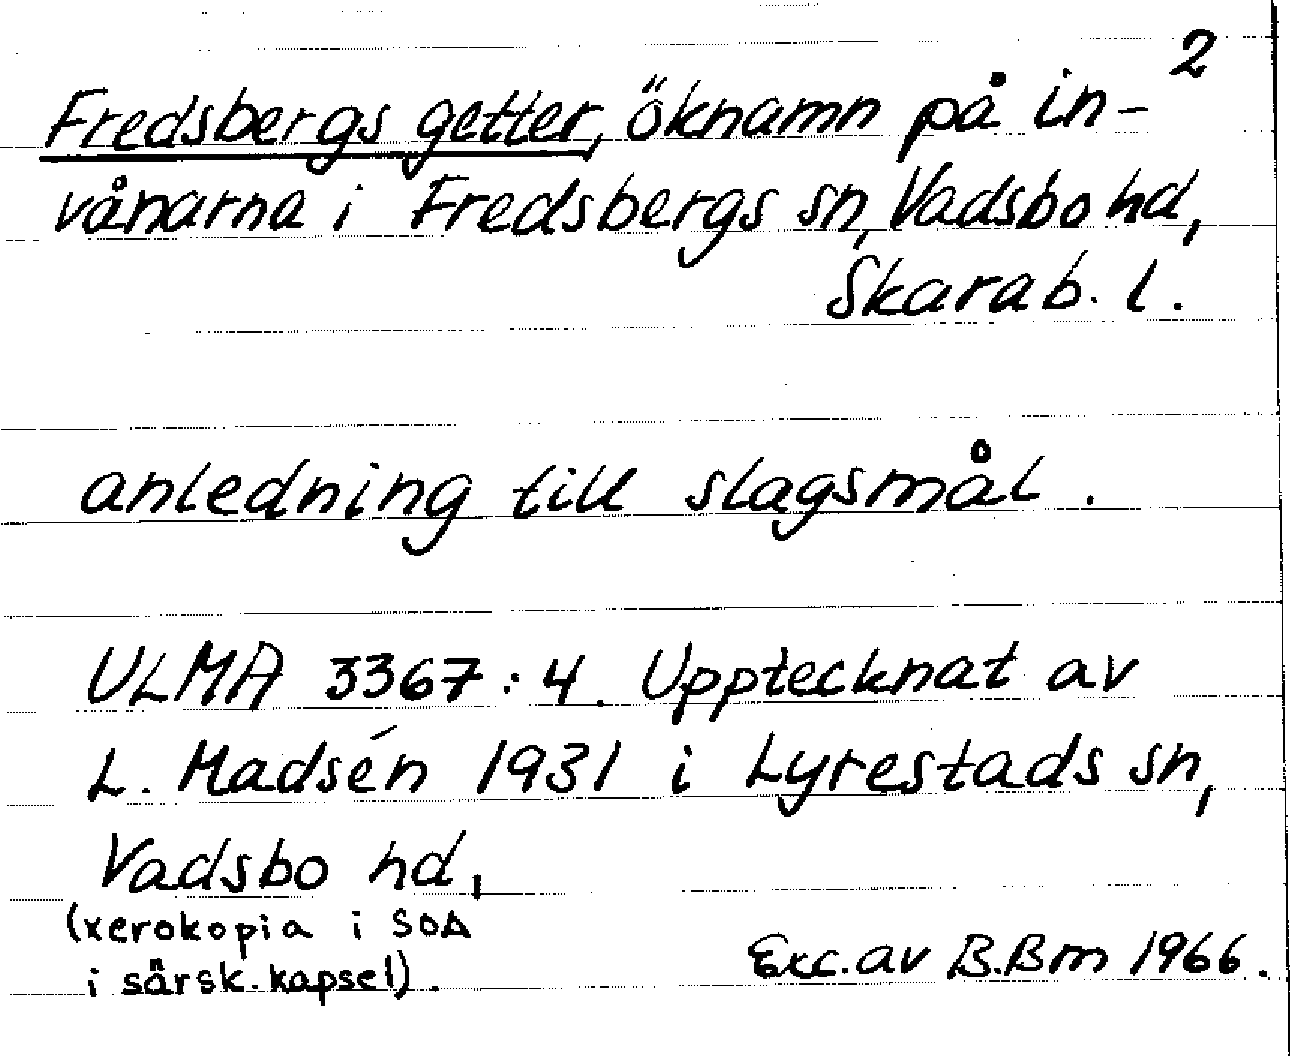 2
Fredsbergs getter, öknamn på in-
vånarna i Fredsbergs sn, Vadsbo hd,
Skarab. l.
anledning till slagsmål.
ULMA 3367:4. Upptecknat av
L. Madsén 1931 i Lyrestads sn,
Vadsbo hd,
(xerokopia i SOA
i särsk. kapsel).
Exc. av B.Bm 1966.